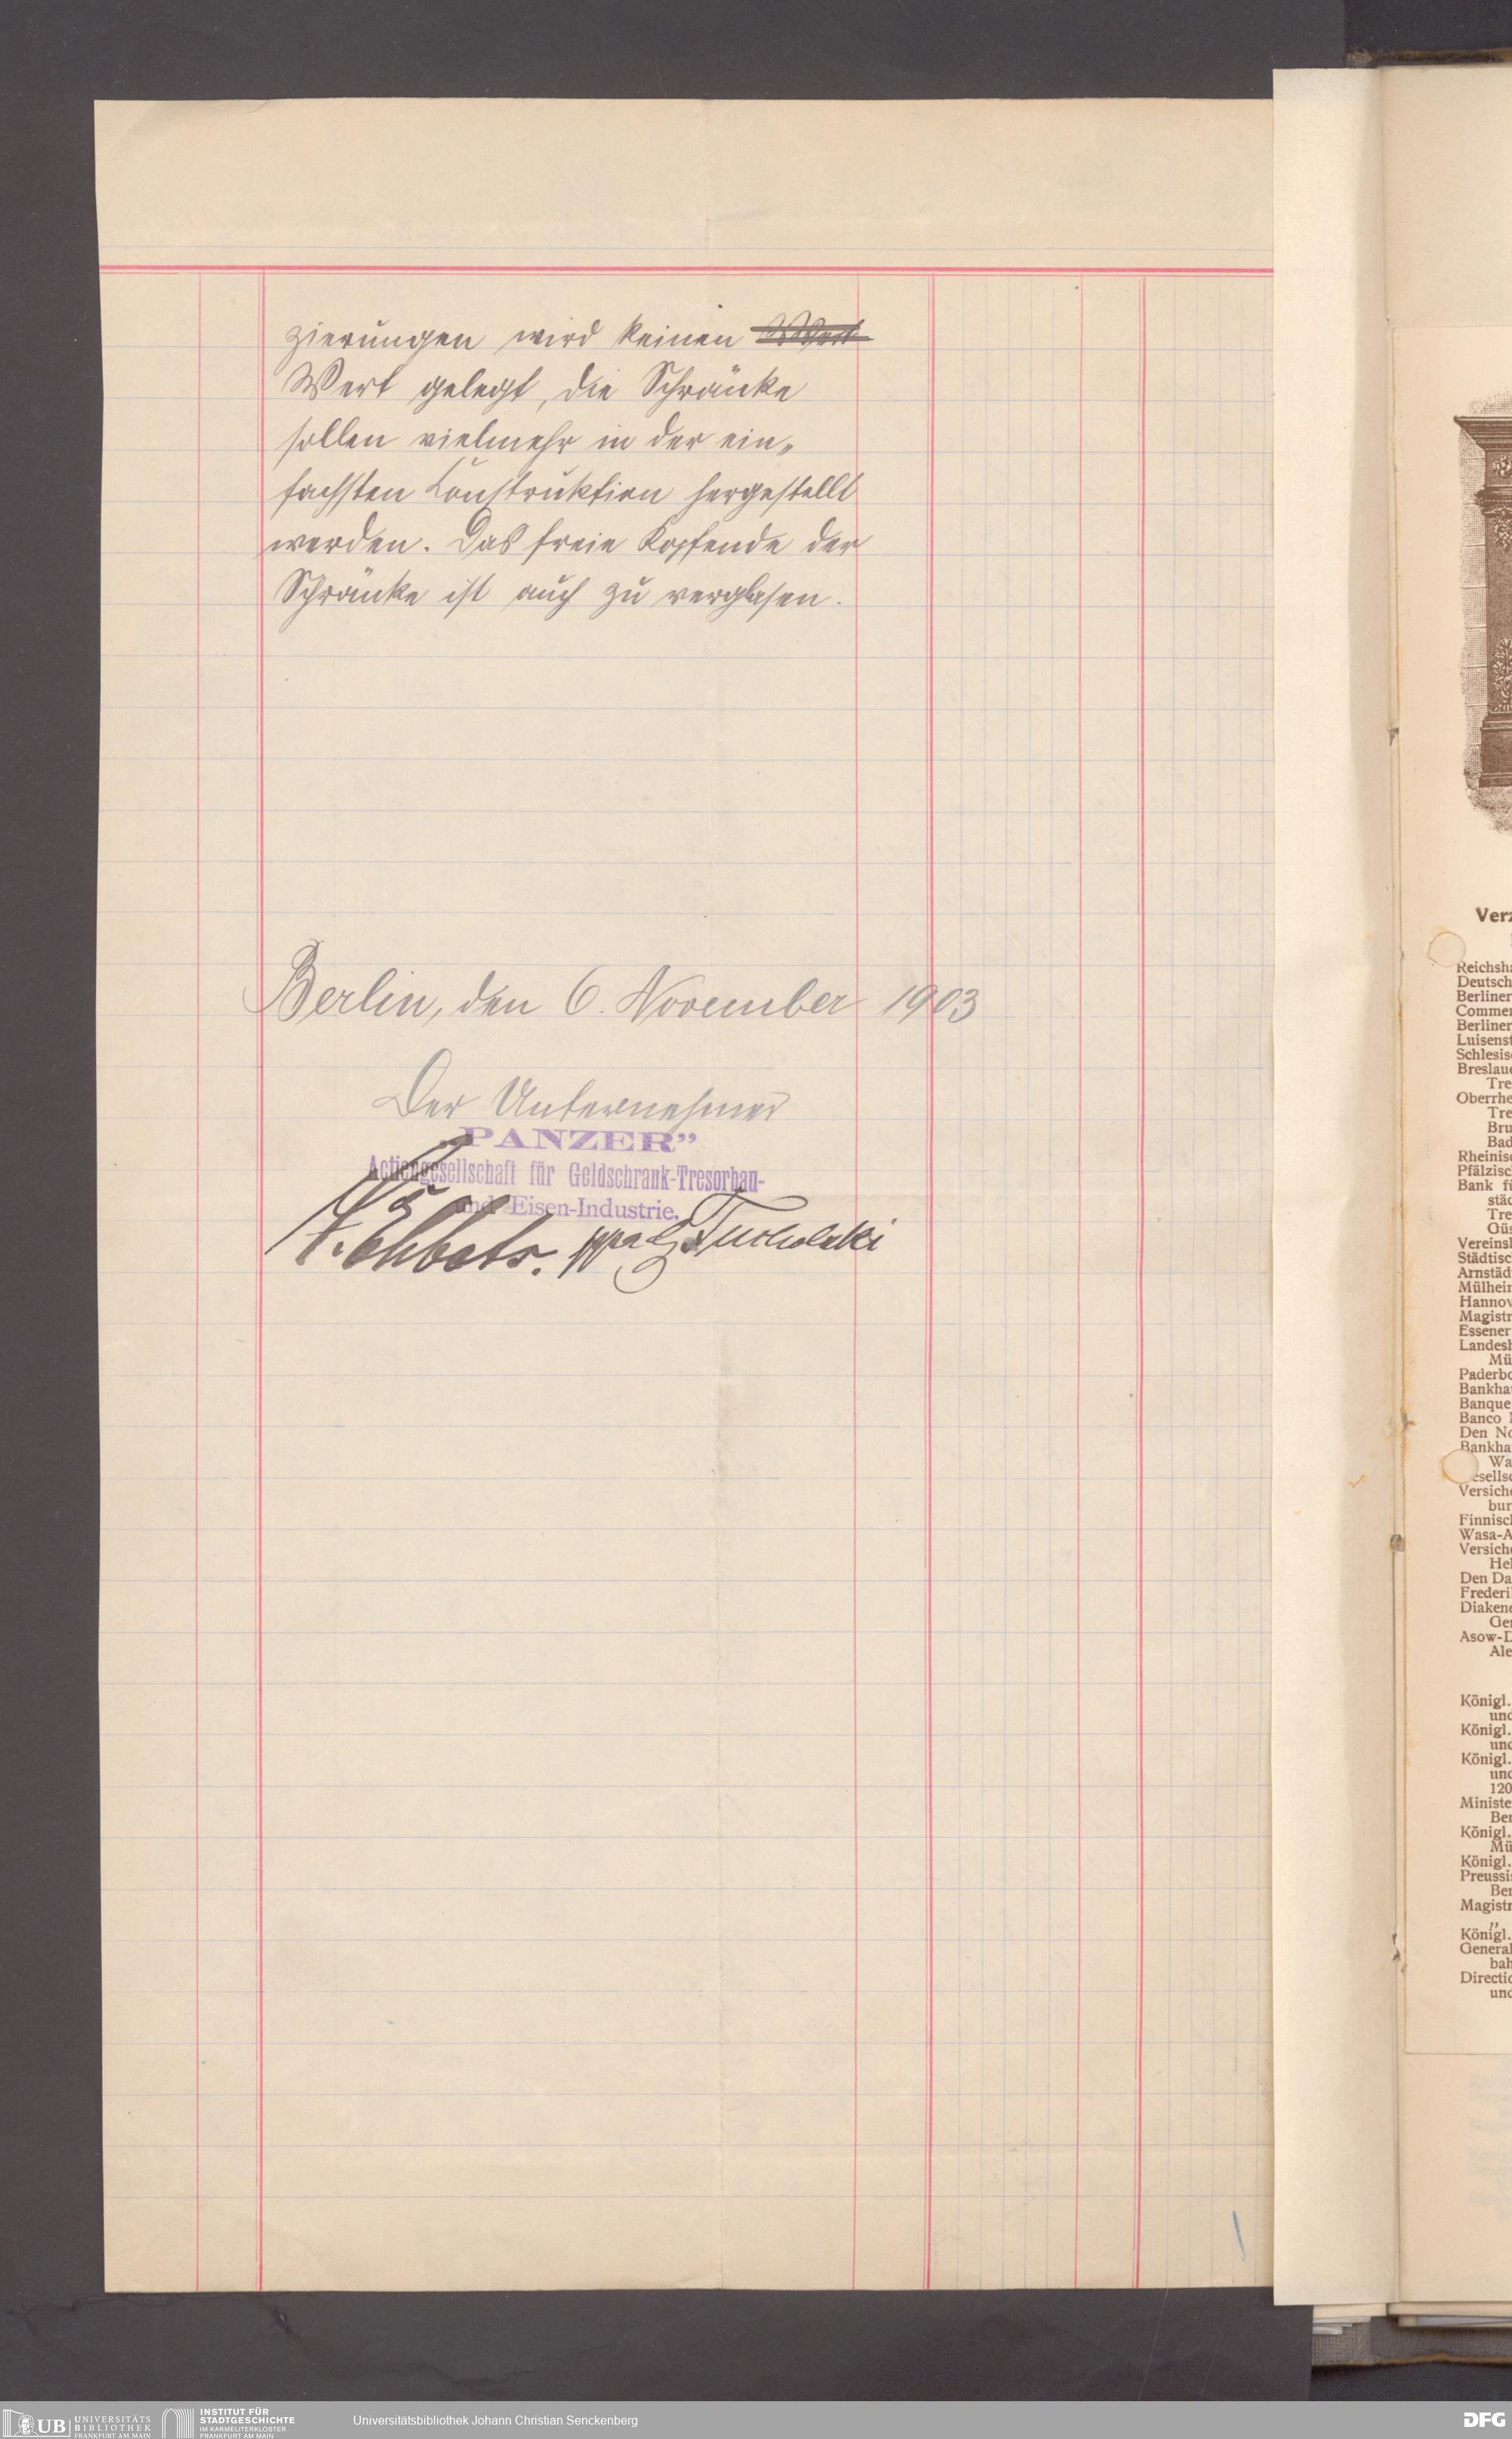 zierungen wird keinen Wert
Wert gelegt, die Schränke
sollen vielmehr in der ein„
fachsten Construktion hergestellt
werden. Das freie Kopfende der
Schränke ist auch zu verglasen.
Berlin, den 6. November 1903
Der Unternehmer
„PANZER”
Actiengesellschaft für Geldschrank-Tresorbau-
und Eisen-Industrie.
ppa Tucholski
Verz
Reichsha
Deutsch
Berliner
Commer
Berliner
Luisenst
Schlesis
Breslaue
Tre
Oberrhe
Tre
Bru
Bad
Rheinisc
Pfälzisc
Bank fü
städ
Tre
Güs
Vereinsb
Städtisc
Arnstäd
Mülhein
Hannov
Magistr
Essener
Landesb
Mü
Paderbo
Bankha
Banque
Banco
Den No
Bankha
Wa
esellsc
Versiche
bur
Finnisch
Wasa-A
Versiche
Hel
Den Da
Frederi
Diakene
Ger
Asow-D
Ale
Königl.
und
Königl.
und
Königl.
und
120
Ministe
Ber
Königl.
Mü
Königl.
Preussis
Ber
Magistr
„
Königl.
General
bah
Directio
und
UB UNIVERSITÄTS
BIBLIOTHEK
FRANKFURT AM MAIN
INSTITUT FÜR
STADTGESCHICHTE
IM KARMELITERKLOSTER
FRANKFURT AM MAIN
Universitätsbibliothek Johann Christian Senckenberg
DFG